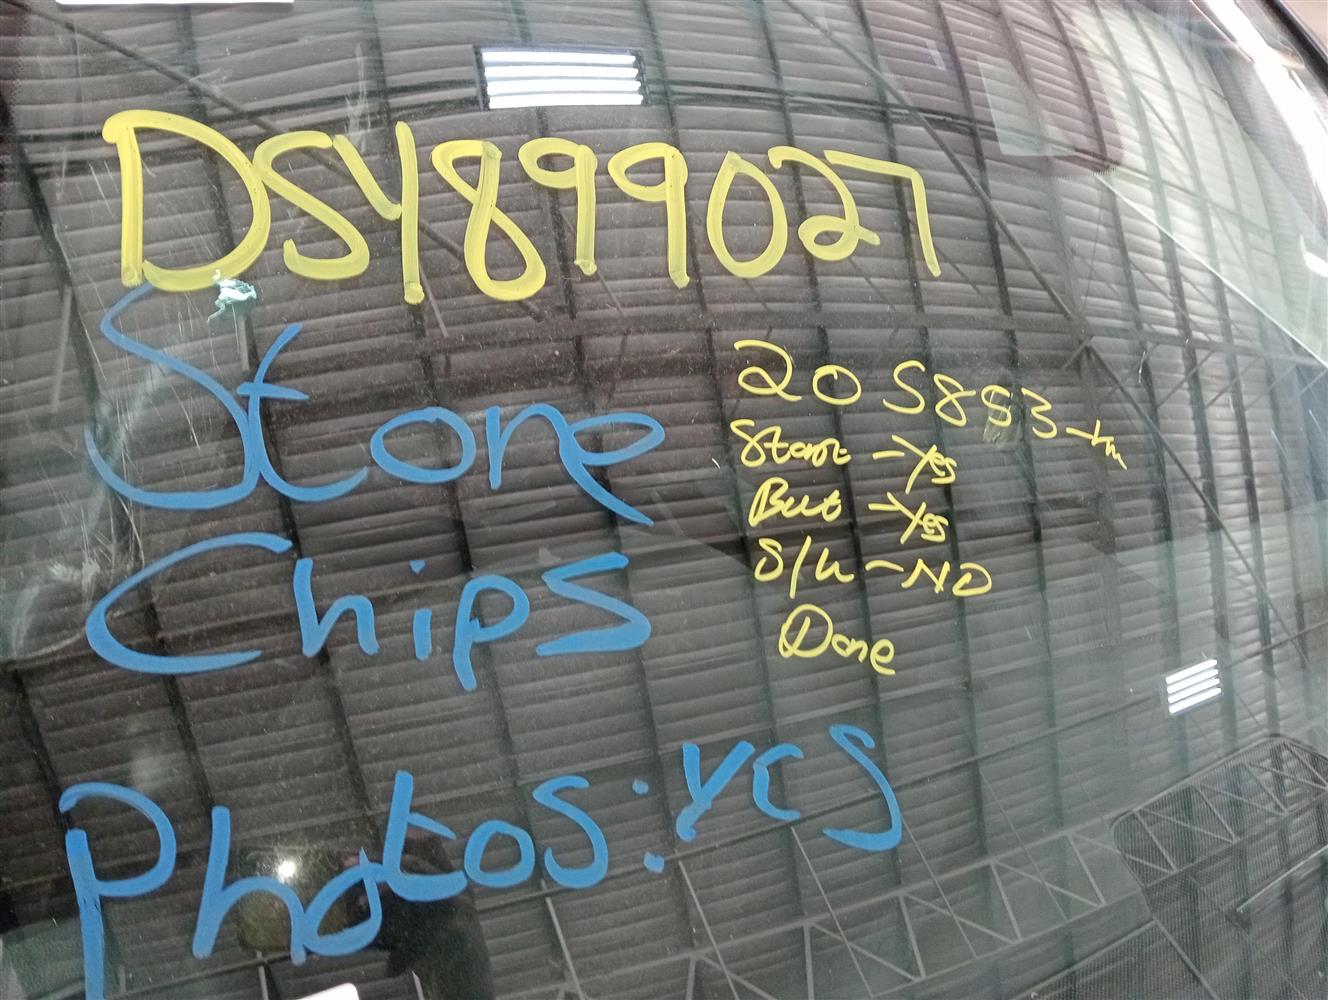 DSY899027
Stone
Chips
Photos: Yes
205853 km
Start - Yes
But - Yes
S/h - NO
Done